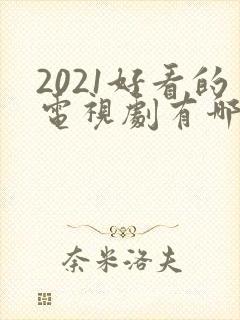 2021好看的
電視劇有哪
奈米洛夫